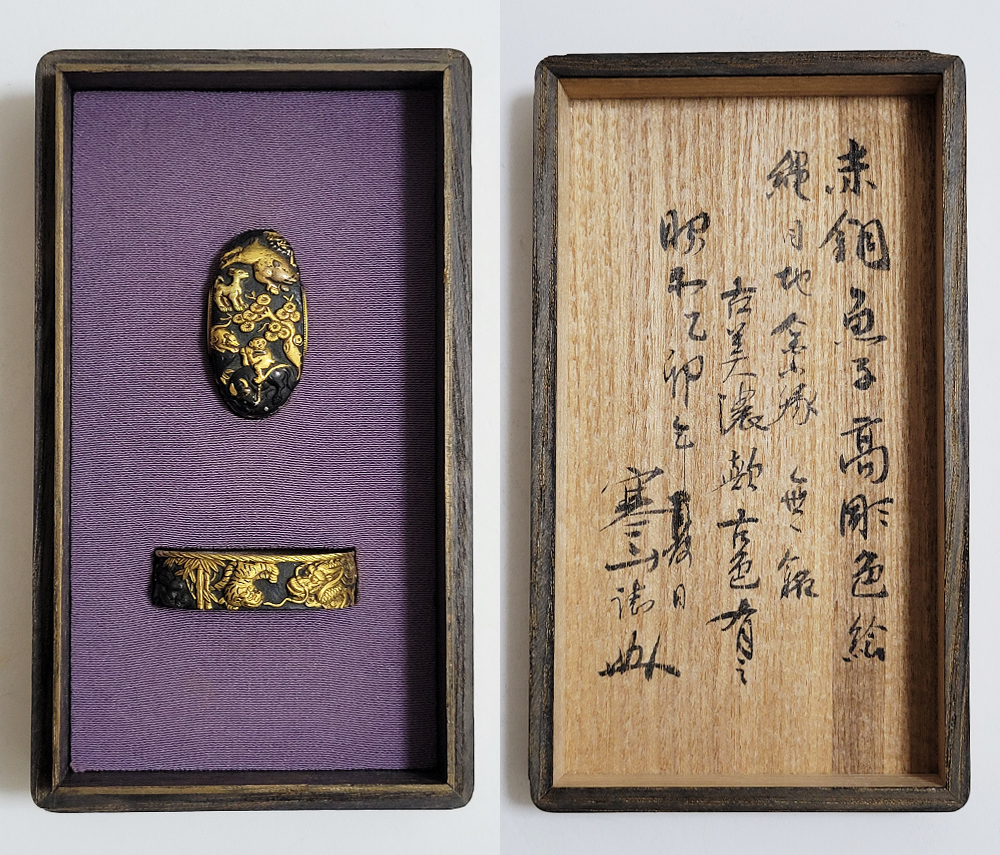 赤銅魚子高彫色絵
縄目地金小縁 無銘
古美濃歟古色有之
昭和乙卯年夏日
寒山誌